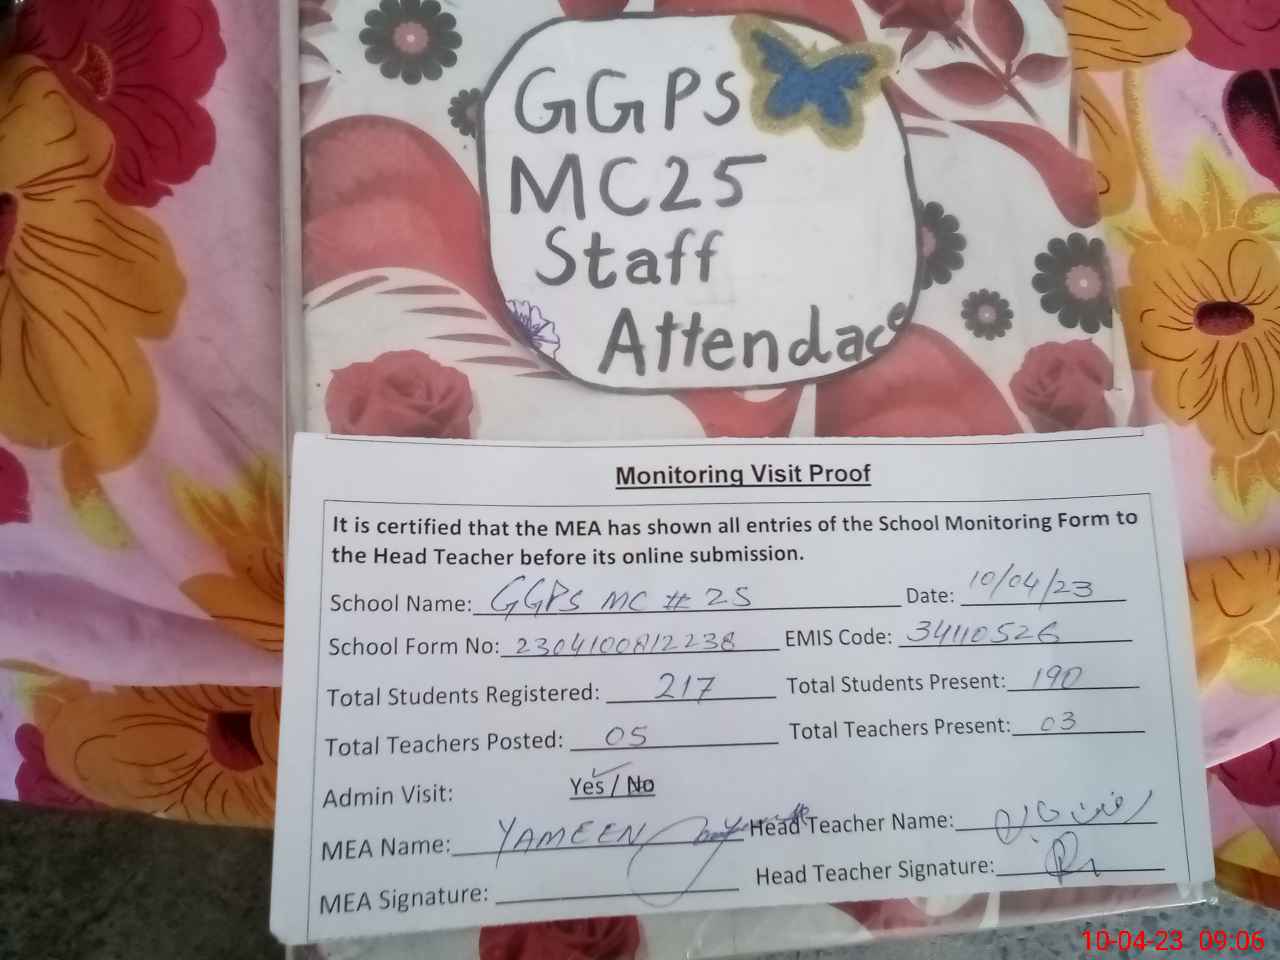 GGPS
MC25
Staff
Attendace
Monitoring Visit Proof
It is certified that the MEA has shown all entries of the School Monitoring Form to
the Head Teacher before its online submission.
School Name: GGPS MC # 25 Date: 10/04/23
School Form No: 2304100812238 EMIS Code: 34110526
Total Students Registered: 217 Total Students Present: 190
Total Teachers Posted: 05 Total Teachers Present: 03
Admin Visit: Yes / No
MEA Name: YAMEEN Head Teacher Name:
MEA Signature: Head Teacher Signature:
10-04-23 09:06